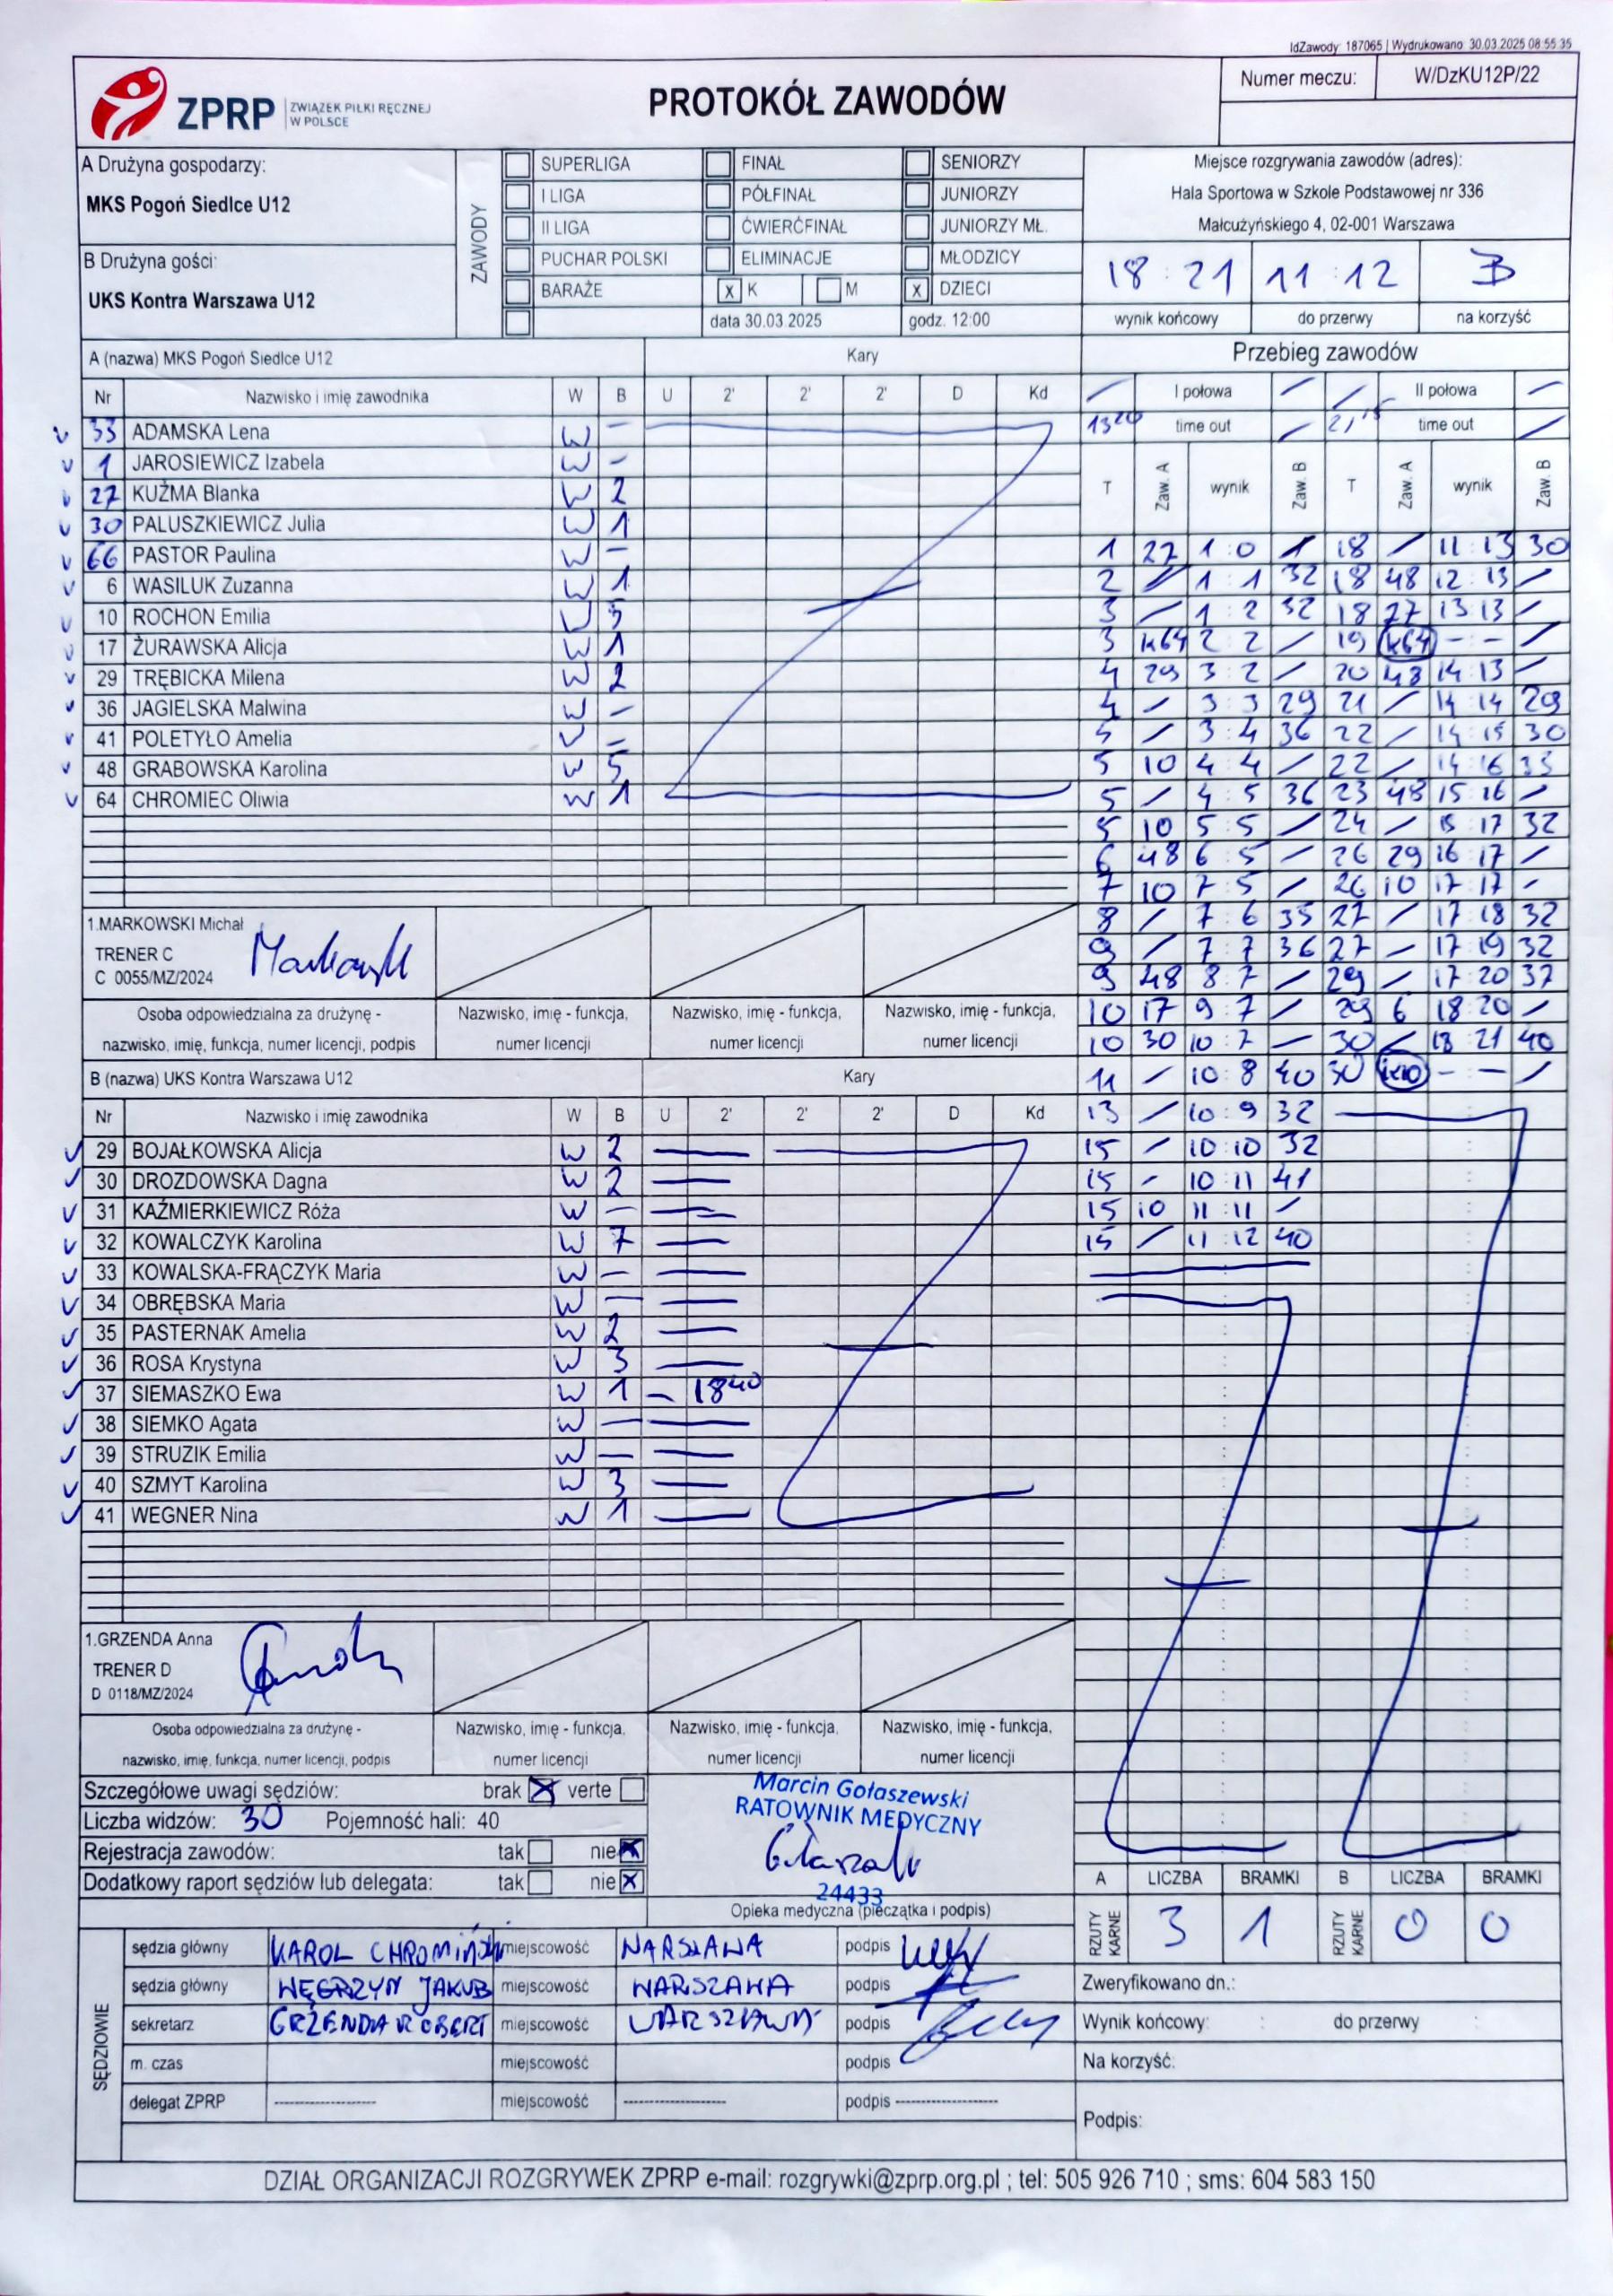 IdZawody: 187065 | Wydrukowano: 30.03.2025 08:55:35
ZPRP ZWIĄZEK PIŁKI RĘCZNEJ
W POLSCE
PROTOKÓŁ ZAWODÓW
Numer meczu: W/DzKU12P/22
A Drużyna gospodarzy:
MKS Pogoń Siedlce U12
B Drużyna gości:
UKS Kontra Warszawa U12
ZAWODY
SUPERLIGA FINAŁ SENIORZY
I LIGA PÓŁFINAŁ JUNIORZY
II LIGA ĆWIERĆFINAŁ JUNIORZY MŁ.
PUCHAR POLSKI ELIMINACJE MŁODZICY
BARAŻE X K M X DZIECI
data 30.03.2025 godz. 12:00
Miejsce rozgrywania zawodów (adres):
Hala Sportowa w Szkole Podstawowej nr 336
Małcużyńskiego 4, 02-001 Warszawa
18 : 21 11 : 12 B
wynik końcowy do przerwy na korzyść
A (nazwa) MKS Pogoń Siedlce U12 Kary
Nr Nazwisko i imię zawodnika W B U 2' 2' 2' D Kd
33 ADAMSKA Lena W –
1 JAROSIEWICZ Izabela W –
27 KUŹMA Blanka W 2
30 PALUSZKIEWICZ Julia W 1
66 PASTOR Paulina W –
6 WASILUK Zuzanna W 1
10 ROCHON Emilia W 5
17 ŻURAWSKA Alicja W 1
29 TRĘBICKA Milena W 2
36 JAGIELSKA Malwina W –
41 POLETYŁO Amelia W –
48 GRABOWSKA Karolina W 5
64 CHROMIEC Oliwia W 1
1.MARKOWSKI Michał
TRENER C
C 0055/MZ/2024
Osoba odpowiedzialna za drużynę -
nazwisko, imię, funkcja, numer licencji, podpis
Nazwisko, imię - funkcja,
numer licencji
Nazwisko, imię - funkcja,
numer licencji
Nazwisko, imię - funkcja,
numer licencji
B (nazwa) UKS Kontra Warszawa U12 Kary
Nr Nazwisko i imię zawodnika W B U 2' 2' 2' D Kd
29 BOJAŁKOWSKA Alicja W 2
30 DROZDOWSKA Dagna W 2
31 KAŹMIERKIEWICZ Róża W –
32 KOWALCZYK Karolina W 7
33 KOWALSKA-FRĄCZYK Maria W –
34 OBRĘBSKA Maria W –
35 PASTERNAK Amelia W 2
36 ROSA Krystyna W 3
37 SIEMASZKO Ewa W 1 – 18 40
38 SIEMKO Agata W –
39 STRUZIK Emilia W –
40 SZMYT Karolina W 3
41 WEGNER Nina W 1
1.GRZENDA Anna
TRENER D
D 0118/MZ/2024
Osoba odpowiedzialna za drużynę -
nazwisko, imię, funkcja, numer licencji, podpis
Nazwisko, imię - funkcja,
numer licencji
Nazwisko, imię - funkcja,
numer licencji
Nazwisko, imię - funkcja,
numer licencji
Przebieg zawodów
/ I połowa / / II połowa /
13 20 time out / 21 15 time out /
T Zaw. A wynik Zaw. B T Zaw. A wynik Zaw. B
1 27 1 : 0 / 18 / 11 : 13 30
2 / 1 : 1 32 18 48 12 : 13 /
3 / 1 : 2 32 18 27 13 : 13 /
3 k64 2 : 2 / 19 k64 – : – /
4 29 3 : 2 / 20 48 14 : 13 /
4 / 3 : 3 29 21 / 14 : 14 29
5 / 3 : 4 36 22 / 14 : 15 30
5 10 4 : 4 / 22 / 14 : 16 35
5 / 4 : 5 36 23 48 15 : 16 /
5 10 5 : 5 / 24 / 15 : 17 32
6 48 6 : 5 / 26 29 16 : 17 /
7 10 7 : 5 / 26 10 17 : 17 /
8 / 7 : 6 35 27 / 17 : 18 32
9 / 7 : 7 36 27 / 17 : 19 32
9 48 8 : 7 / 29 / 17 : 20 37
10 17 9 : 7 / 29 6 18 : 20 /
10 30 10 : 7 / 30 / 18 : 21 40
11 / 10 : 8 40 30 k10 – : – /
13 / 10 : 9 32
15 / 10 : 10 32
15 – 10 : 11 41
15 10 11 : 11 /
15 / 11 : 12 40
Szczegółowe uwagi sędziów: brak X verte
Liczba widzów: 30 Pojemność hali: 40
Rejestracja zawodów: tak nie X
Dodatkowy raport sędziów lub delegata: tak nie X
Marcin Gołaszewski
RATOWNIK MEDYCZNY
24433
Opieka medyczna (pieczątka i podpis)
A LICZBA BRAMKI B LICZBA BRAMKI
RZUTY KARNE 3 1 RZUTY KARNE 0 0
SĘDZIOWIE
sędzia główny KAROL CHROMIŃSKI miejscowość WARSZAWA podpis
sędzia główny WĘGRZYN JAKUB miejscowość WARSZAWA podpis
sekretarz GRZENDA ROBERT miejscowość WARSZAWA podpis
m. czas miejscowość podpis
delegat ZPRP -------------------- miejscowość -------------------- podpis --------------------
Zweryfikowano dn.:
Wynik końcowy: : do przerwy :
Na korzyść:
Podpis:
DZIAŁ ORGANIZACJI ROZGRYWEK ZPRP e-mail: rozgrywki@zprp.org.pl ; tel: 505 926 710 ; sms: 604 583 150